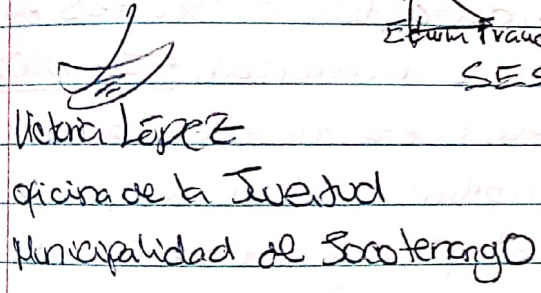 Edwin Franc
SES
Victoria López
oficina de la Juventud
Municipalidad de Socotenango